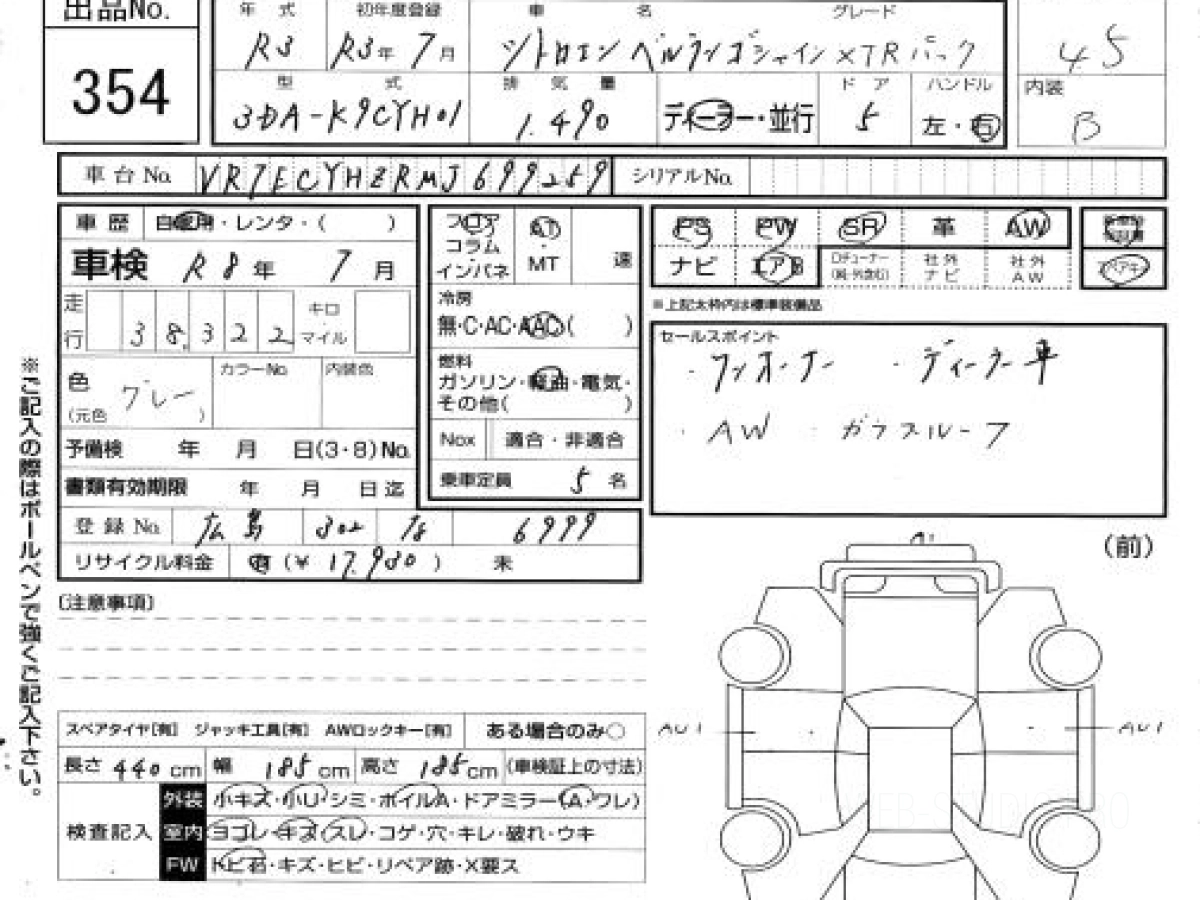 出品No.
354
年式 初年度登録 車名 グレード
R3 R3年 7月 シトロエン ベルランゴシャイン XTRパック
型式 排気量 ドア ハンドル
3DA-K9CYH01 1.490 ディーラー・並行 5 左・右
45
内装
B
車台No. VR7ECYHZRMJ699259 シリアルNo.
車歴 自家用・レンタ・( )
車検 R8年 7月
走行 38,322 キロ マイル
色 グレー (元色 ) カラーNo. 内装色
予備検 年 月 日(3・8)No.
書類有効期限 年 月 日迄
登録No. 広島 302 6999
リサイクル料金 有 (¥ 17,980 ) 未
フロア
コラム
インパネ
AT・MT
速
冷房
無・C・AC・AAC( )
燃料
ガソリン・軽油・電気・
その他( )
Nox 適合・非適合
乗車定員 5名
PS PW SR 革 AW
ナビ エアB ロチューナー 社外ナビ 社外AW
スペアキー
※上記太枠内は標準装備品
セールスポイント
・ワンオーナー ・ディーラー車
・AW ・ガラスルーフ
※ご記入の際はボールペンで強くご記入下さい。
〔注意事項〕
スペアタイヤ[有] ジャッキ工具[有] AWロックキー[有] ある場合のみ○
長さ 440cm 幅 185cm 高さ 185cm (車検証上の寸法)
検査記入
外装 小キズ・小U・シミ・ホイルA・ドアミラー(A・ワレ)
室内 ヨゴレ・キズ・スレ・コゲ・穴・キレ・破れ・ウキ
FW トビ石・キズ・ヒビ・リペア跡・X要ス
(前)
AU1
AU1